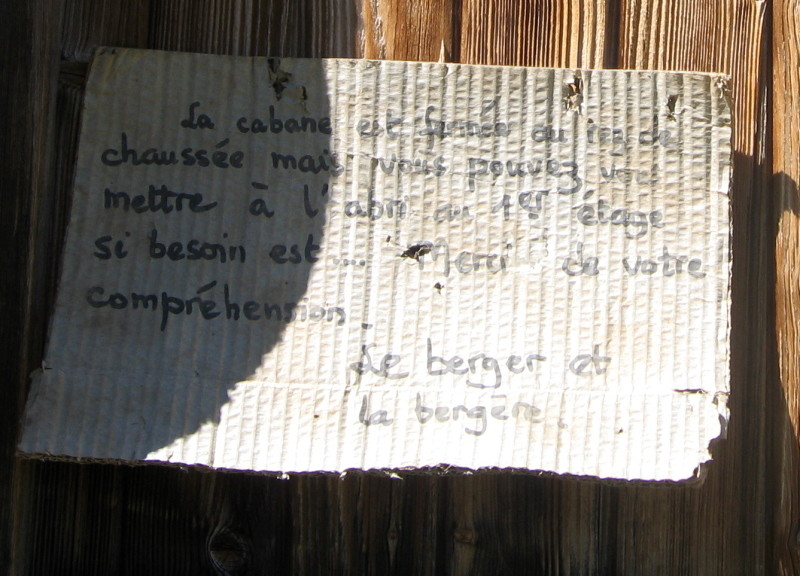 La cabane est fermée au rez de
chaussée mais vous pouvez vous
mettre à l'abri au 1er étage
si besoin est.... Merci de votre
compréhension.
Le berger et
la bergère.